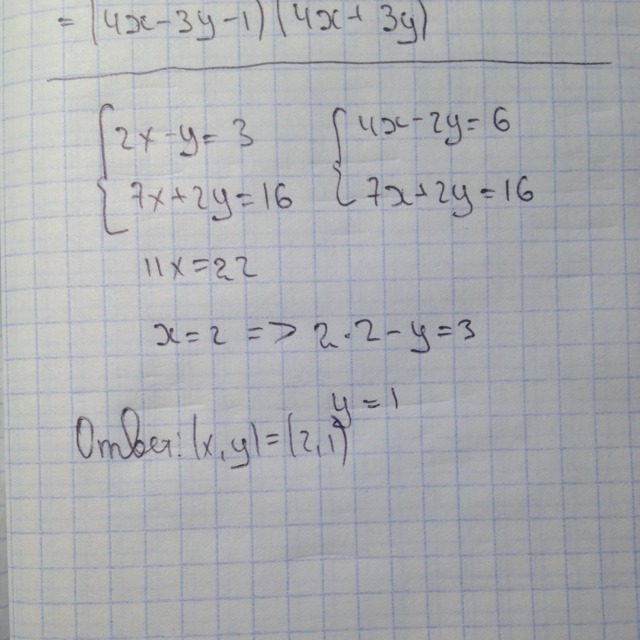 = (4x-3y-1)(4x+3y)
{ 2x-y=3 { 4x-2y=6
7x+2y=16 7x+2y=16
11x=22
x=2 => 2·2-y=3
y=1
Ответ: (x,y)=(2,1)